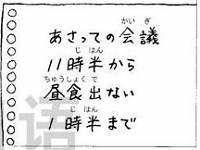 あさっての会議
かいぎ
11時半から
じはん
昼食出ない
ちゅうしょくで
1時半まで
じはん
语